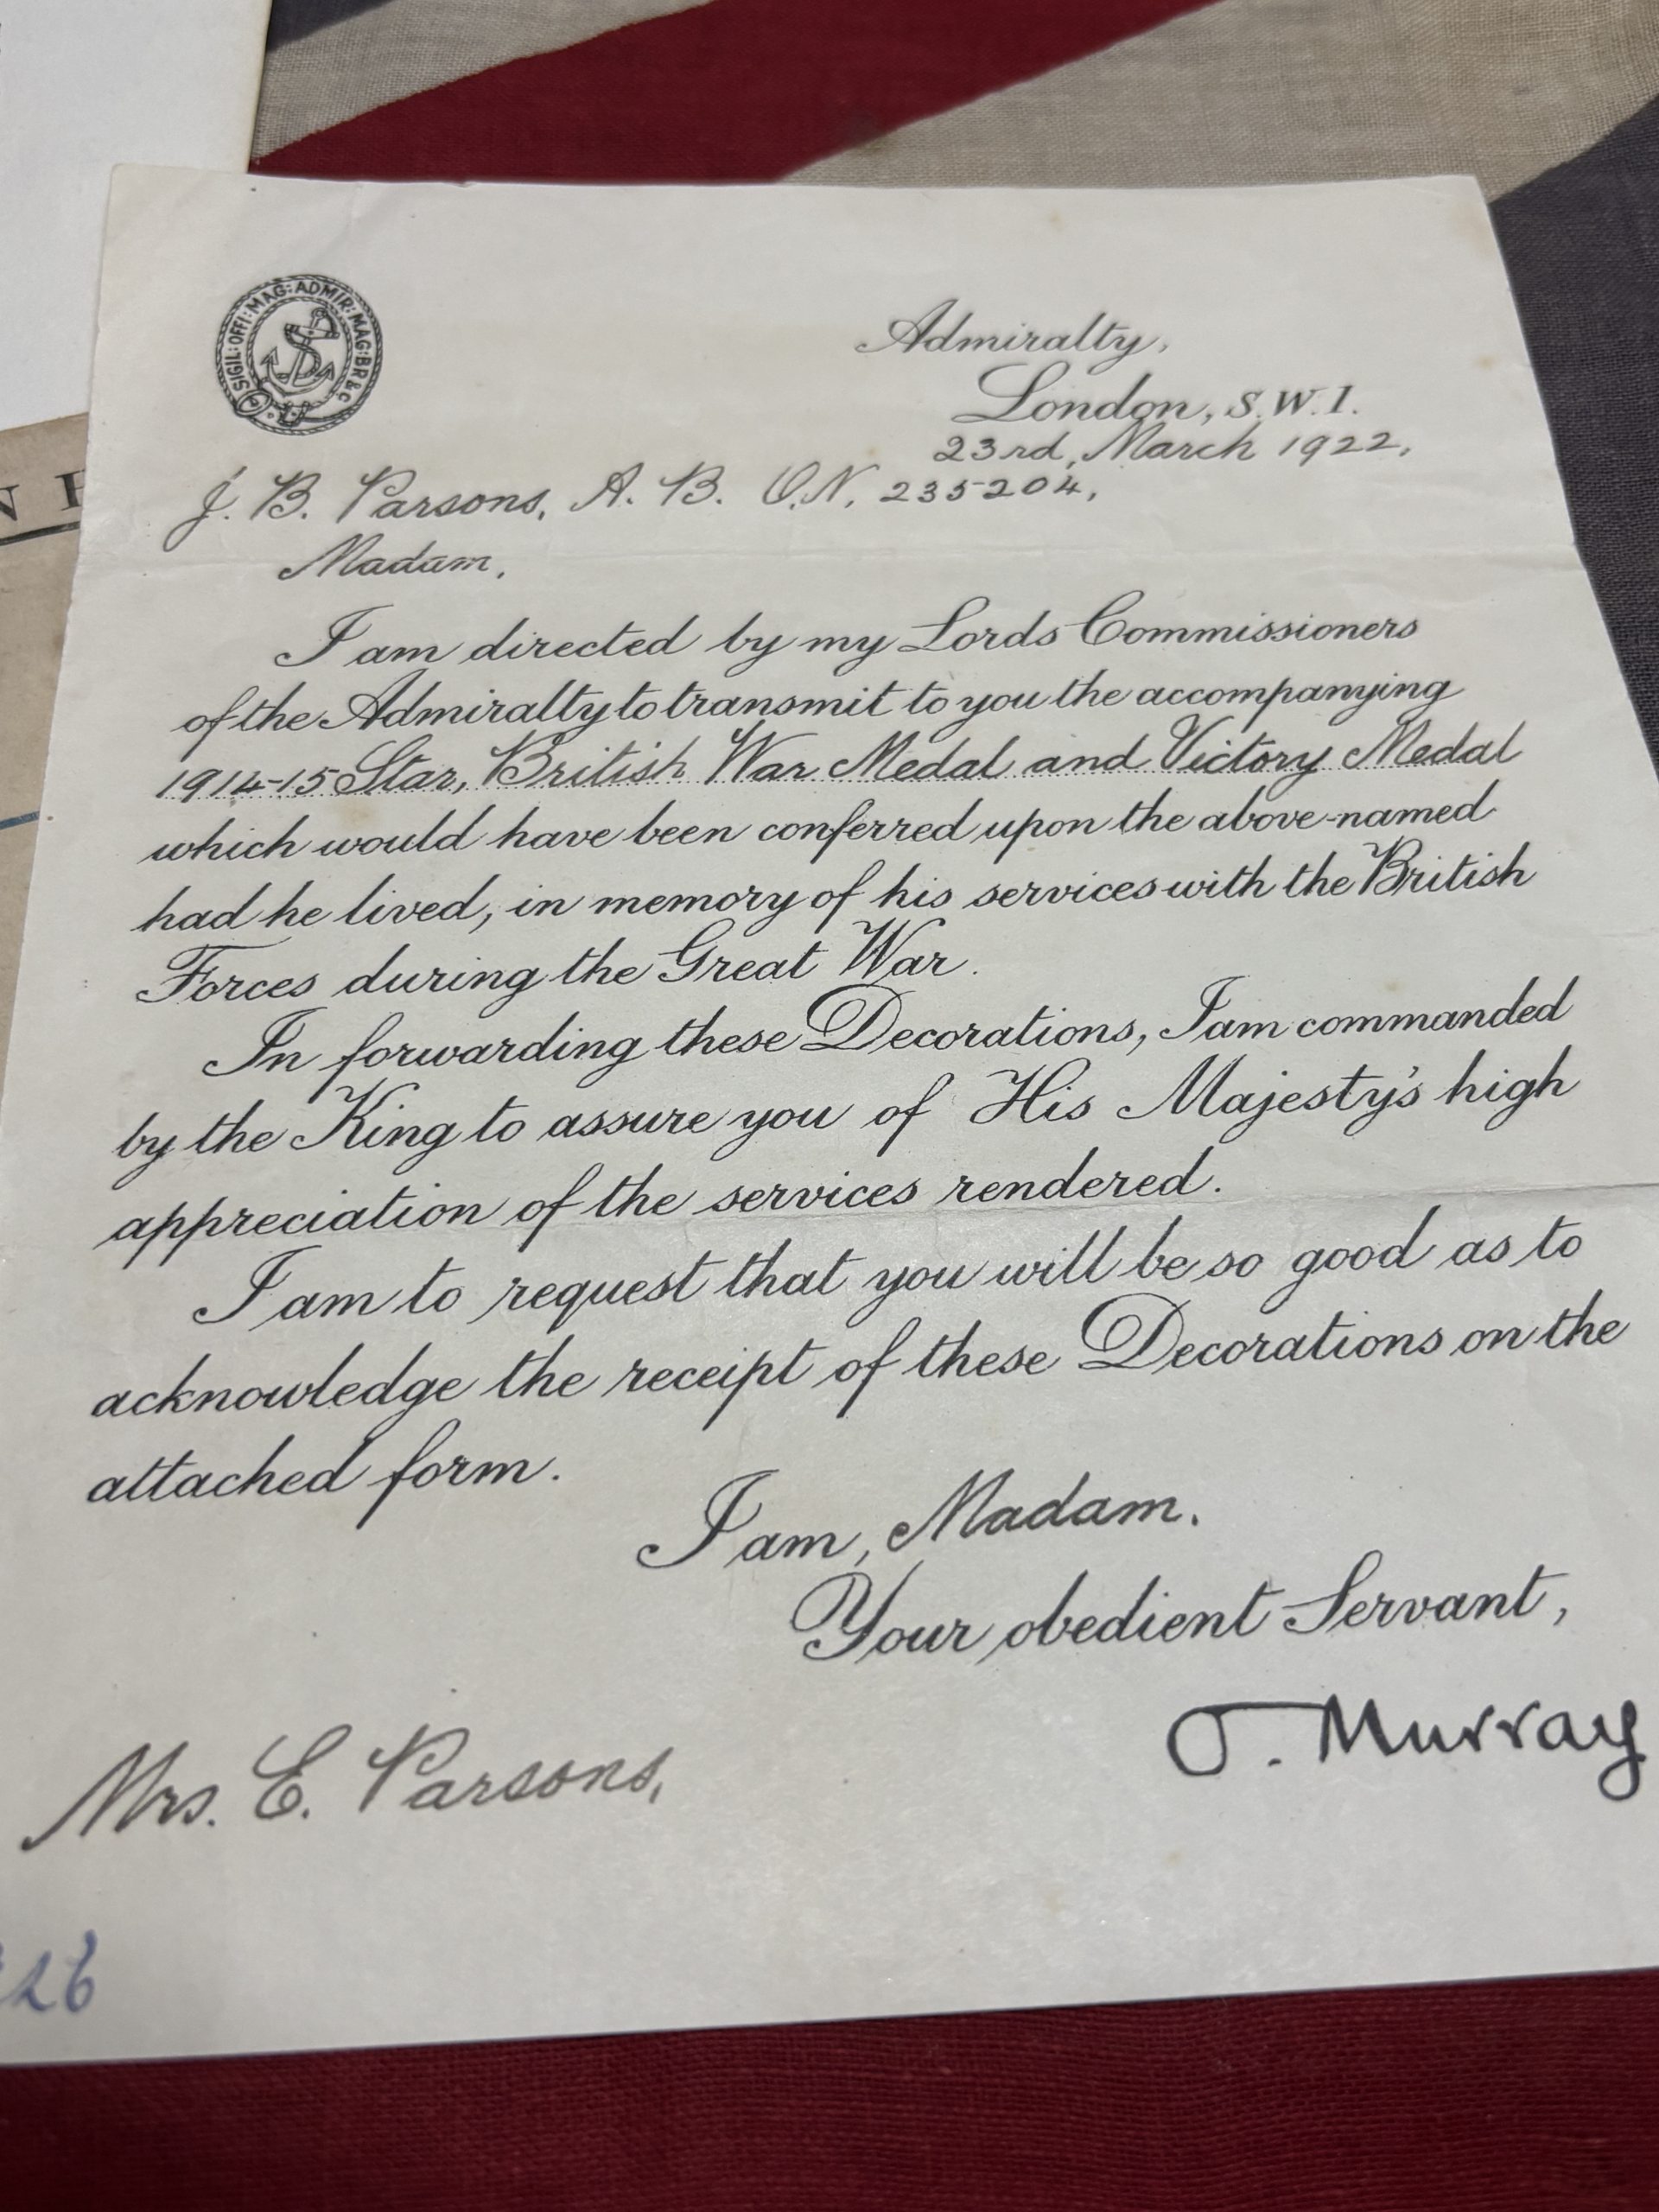 SIGIL: OFFI: MAG: ADMIR: MAG: BR &c
Admiralty,
London, S.W.1.
23rd, March 1922.
J. B. Parsons, A. B. O.N. 235204,
Madam,
I am directed by my Lords Commissioners
of the Admiralty to transmit to you the accompanying
1914-15 Star, British War Medal and Victory Medal
which would have been conferred upon the above-named
had he lived, in memory of his services with the British
Forces during the Great War.
In forwarding these Decorations, I am commanded
by the King to assure you of His Majesty's high
appreciation of the services rendered.
I am to request that you will be so good as to
acknowledge the receipt of these Decorations on the
attached form.
I am, Madam.
Your obedient Servant,
O. Murray
Mrs. E. Parsons,
26